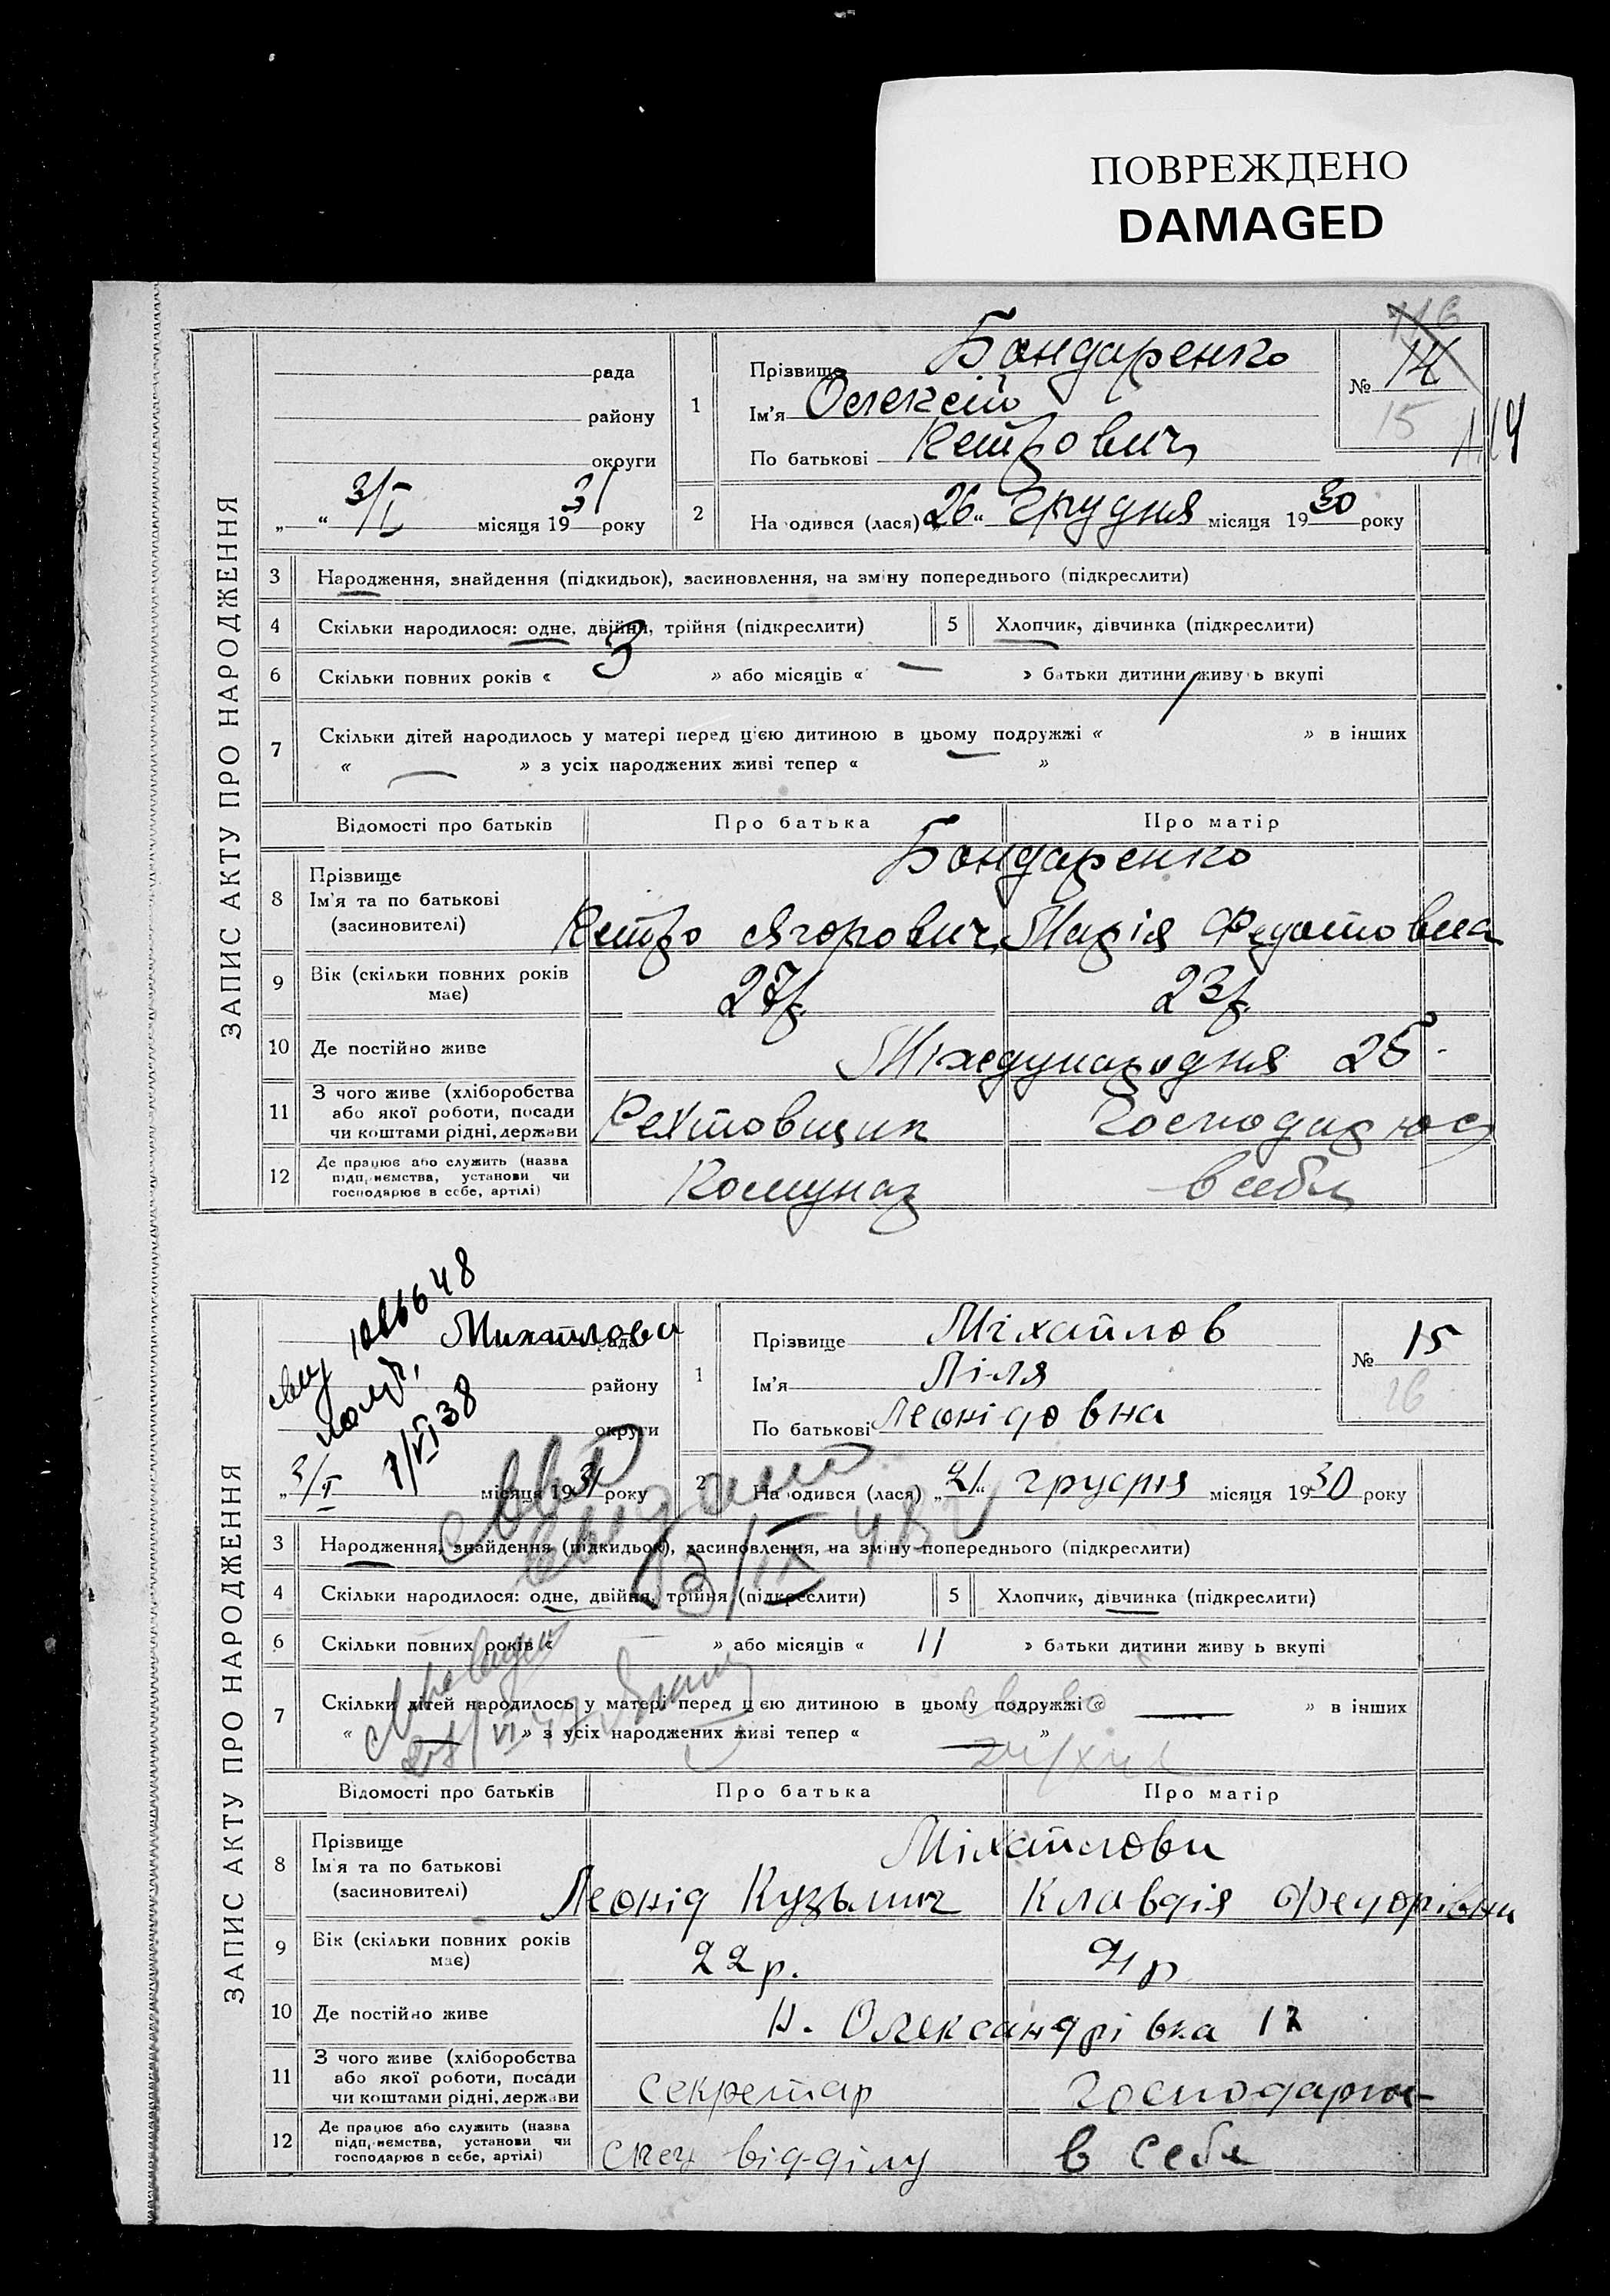 ПОВРЕЖДЕНО
DAMAGED
ЗАПИС АКТУ ПРО НАРОДЖЕННЯ
рада
району
округи
„ “ 3/I місяця 1931 року
1
Прізвище Бондаренко
Ім'я Олексій
По батькові Петрович
№ 14
15
116
114
2
Народився (лася) „26“ Грудня місяця 1930 року
3 Народження, знайдення (підкидьок), засиновлення, на зміну попереднього (підкреслити)
4 Скільки народилося: одне, двійня, трійня (підкреслити)
5 Хлопчик, дівчинка (підкреслити)
6 Скільки повних років « 3 » або місяців « — » батьки дитини живуть вкупі
7 Скільки дітей народилось у матері перед цією дитиною в цьому подружжі « / » в інших
« — » з усіх народжених живі тепер « — »
Відомості про батьків Про батька Про матір
8 Прізвище
Ім'я та по батькові
(засиновителі)
Бондаренко
Петро Ягорович Марія Федотовна
9 Вік (скільки повних років має) 27р. 23р.
10 Де постійно живе Міждународня 25
11 З чого живе (хліборобства
або якої роботи, посади
чи коштами рідні, держави
Рехтовщик Господарює
12 Де працює або служить (назва
підприємства, установи чи
господарює в себе, артілі)
Комунаг в себя
ЗАПИС АКТУ ПРО НАРОДЖЕННЯ
Михайлова
рада
району
округи
7/VI 38
„3/I місяця 1931 року
1
Прізвище Міхайлов
Ім'я Ліля
По батькові Леонідовна
№ 15
16
2
Народився (лася) „21“ грудня місяця 1930 року
3 Народження, знайдення (підкидьок), засиновлення, на зміну попереднього (підкреслити)
3/IX
4 Скільки народилося: одне, двійня, трійня (підкреслити)
5 Хлопчик, дівчинка (підкреслити)
6 Скільки повних років « — » або місяців « 11 » батьки дитини живуть вкупі
7 Скільки дітей народилось у матері перед цією дитиною в цьому подружжі « — » в інших
« — » з усіх народжених живі тепер « — »
Відомості про батьків Про батька Про матір
8 Прізвище
Ім'я та по батькові
(засиновителі)
Міхайлови
Леонід Кузьмич Клавдія Федорівна
9 Вік (скільки повних років має) 22р. 21р
10 Де постійно живе Н. Олександрівка 17
11 З чого живе (хліборобства
або якої роботи, посади
чи коштами рідні, держави
секретар господарює
12 Де працює або служить (назва
підприємства, установи чи
господарює в себе, артілі)
спец відділу в себя